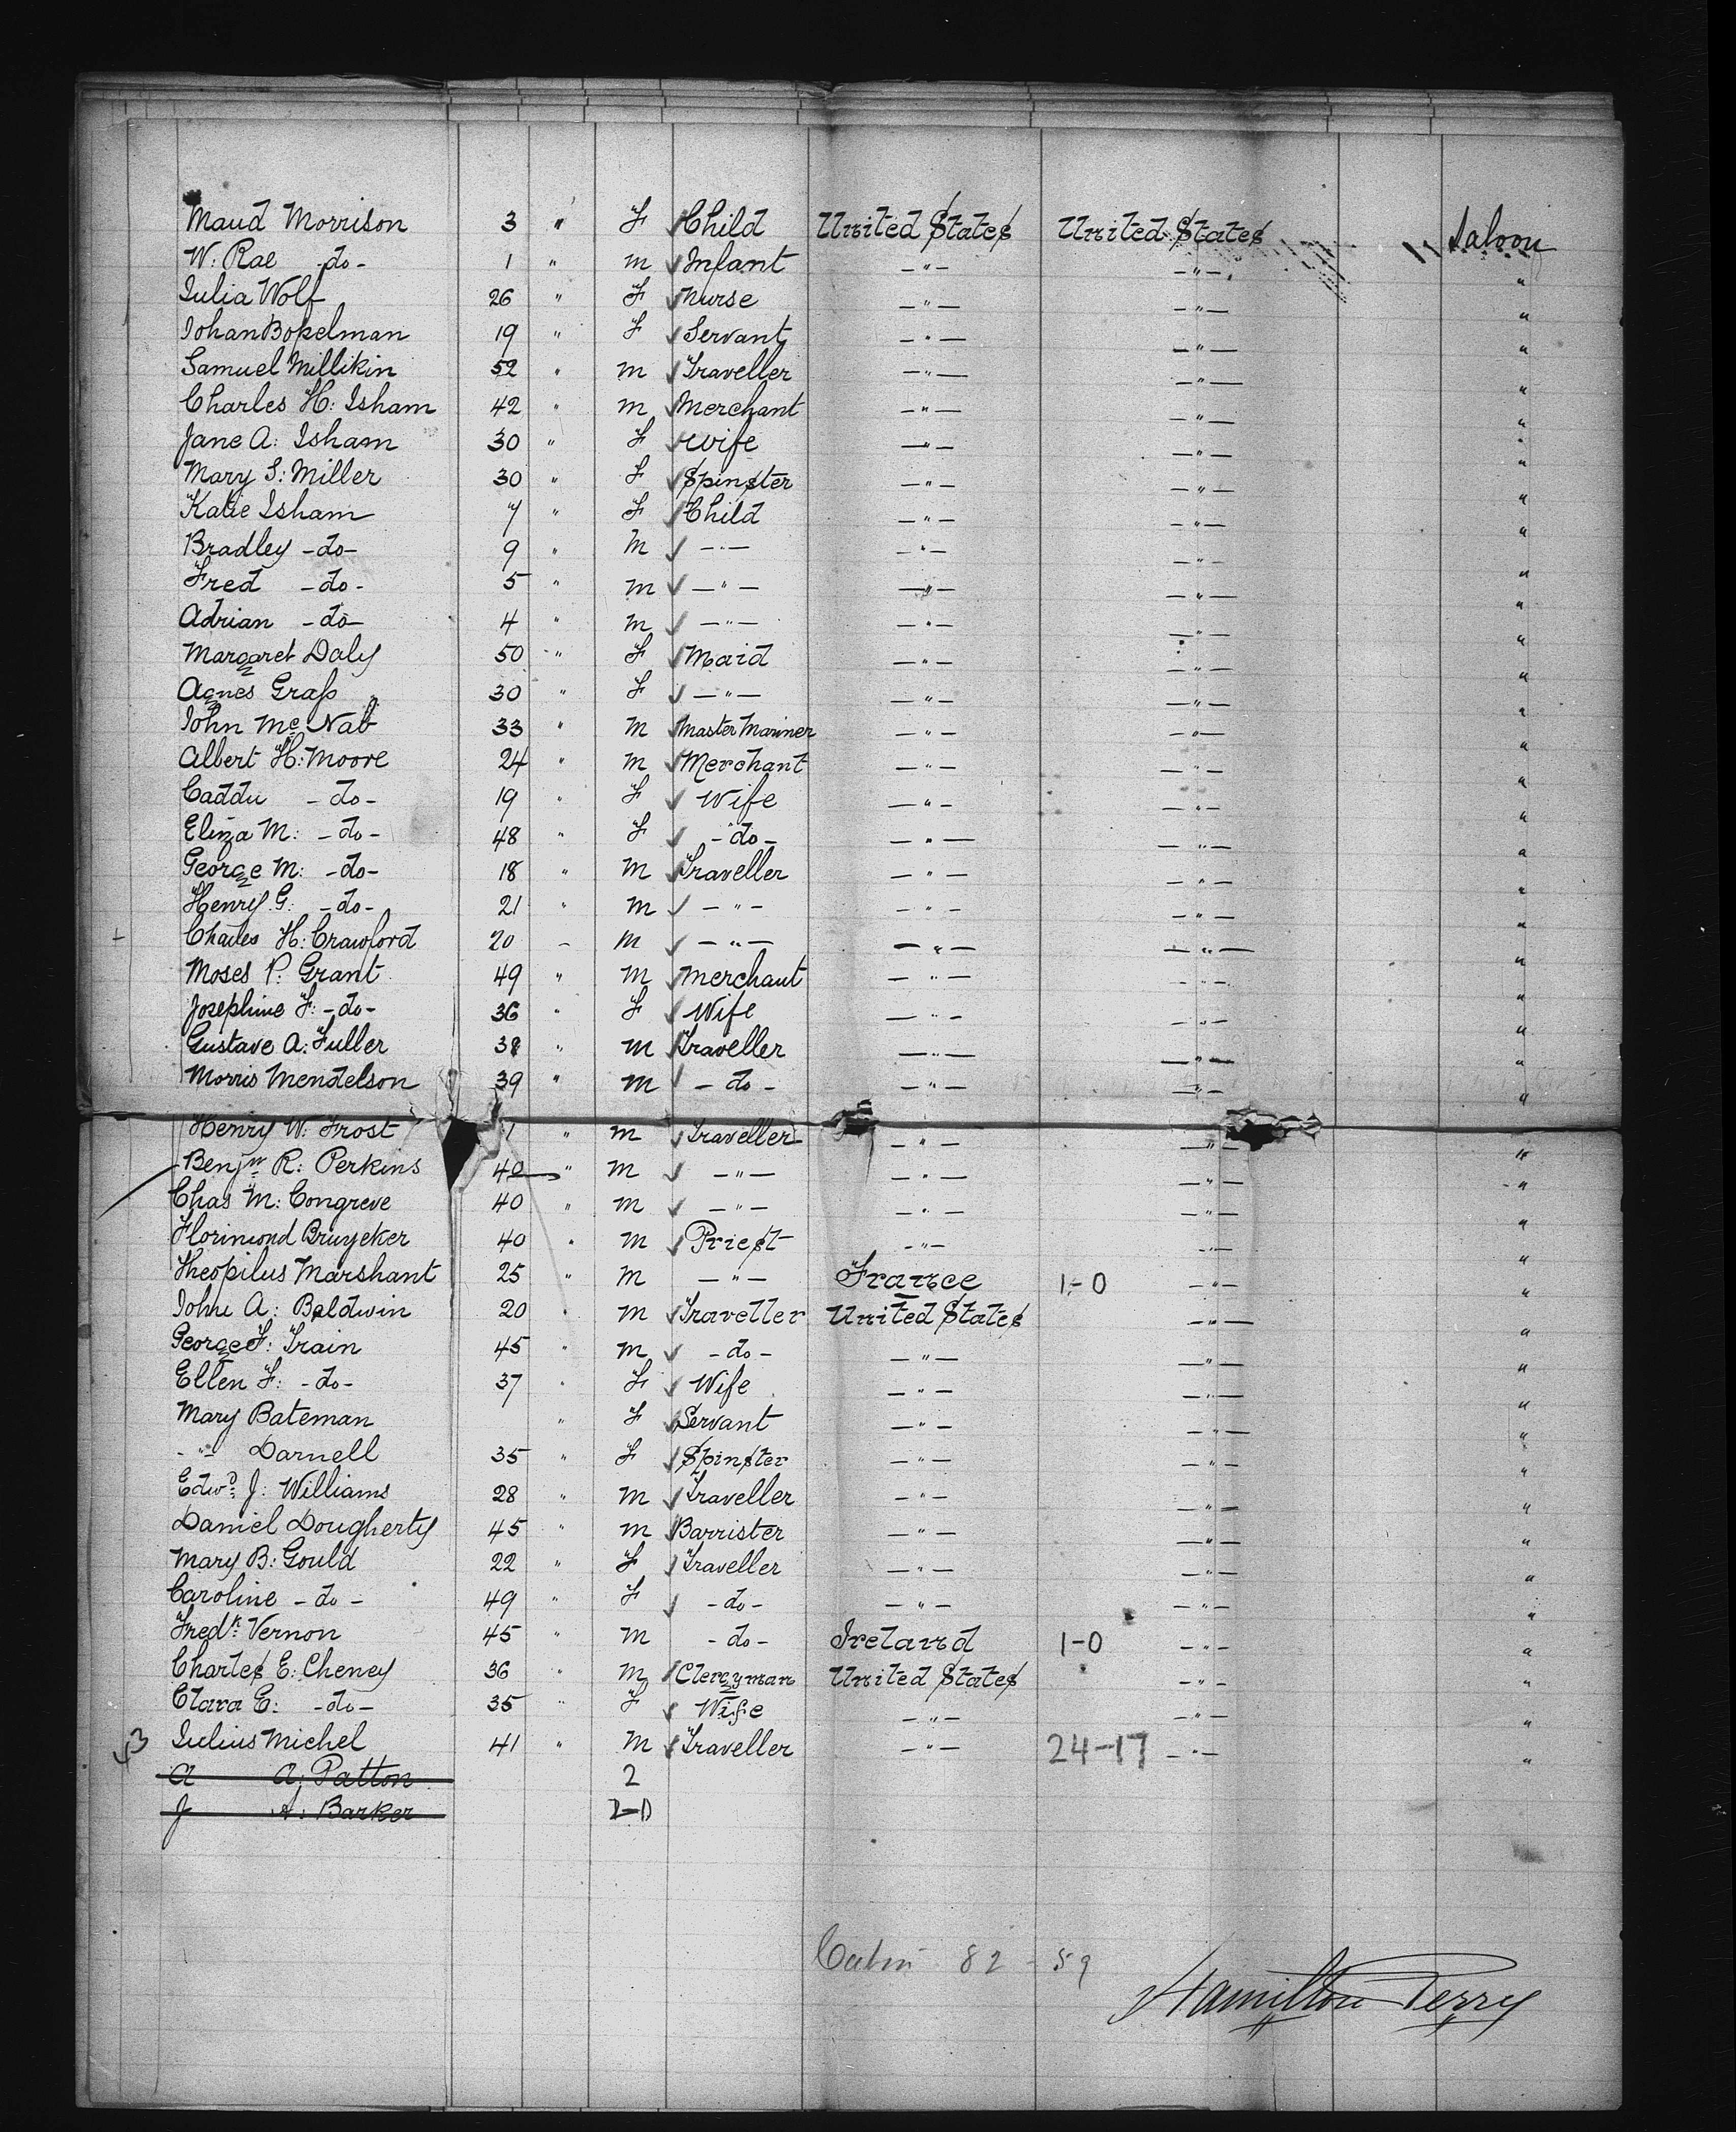 Maud Morrison 3 " F Child United States United States Saloon
W: Rae -do- 1 " M Infant —"— —"— "
Julia Wolf 26 " F Nurse —"— —"— "
Johan Bopelman 19 " F Servant —"— —"— "
Samuel Millikin 52 " M Traveller —"— —"— "
Charles H: Isham 42 " M Merchant —"— —"— "
Jane A: Isham 30 " F Wife —"— —"— "
Mary S: Miller 30 " F Spinster —"— —"— "
Katie Isham 7 " F Child —"— —"— "
Bradley -do- 9 " M —"— —"— —"— "
Fred -do- 5 " M —"— —"— —"— "
Adrian -do- 4 " M —"— —"— —"— "
Margaret Daly 50 " F Maid —"— —"— "
Agnes Grass 30 " F —"— —"— —"— "
John Mc Nab 33 " M Master Mariner —"— —"— "
Albert H: Moore 24 " M Merchant —"— —"— "
Caddu -do- 19 " F Wife —"— —"— "
Eliza M: -do- 48 " F -do- —"— —"— "
George M: -do- 18 " M Traveller —"— —"— "
Henry G: -do- 21 " M —"— —"— —"— "
Charles H: Crawford 20 - M —"— —"— —"— "
Moses P: Grant 49 " M Merchant —"— —"— "
Josephine F: -do- 36 " F Wife —"— —"— "
Gustave A: Fuller 38 " M Traveller —"— —"— "
Morris Mendelson 39 " M -do- —"— —"— "
Henry W: Frost 1 " M Traveller —"— —"— "
Benjn R: Perkins 40 " M —"— —"— —"— "
Chas M: Congreve 40 " M —"— —"— —"— "
Florimond Bruyeker 40 " M Priest —"— —"— "
Theopilus Marshant 25 " M —"— France 1-0 —"— "
John A: Baldwin 20 " M Traveller United States —"— "
George F: Train 45 " M -do- —"— —"— "
Ellen F: -do- 37 " F Wife —"— —"— "
Mary Bateman " F Servant —"— —"— "
-"- Darnell 35 " F Spinster —"— —"— "
Edwd J: Williams 28 " M Traveller —"— —"— "
Daniel Dougherty 45 " M Barrister —"— —"— "
Mary B: Gould 22 " F Traveller —"— —"— "
Caroline -do- 49 " F -do- —"— —"— "
Fredk Vernon 45 " M -do- Ireland 1-0 —"— "
Charles E: Cheney 36 " M Clergyman United States —"— "
Clara E: -do- 35 " F Wife —"— —"— "
43 Julius Michel 41 " M Traveller —"— 24-17 —"— "
A A: Patton 2
J A: Barker 2-0
Cabin 82 - 59
Hamilton Perry